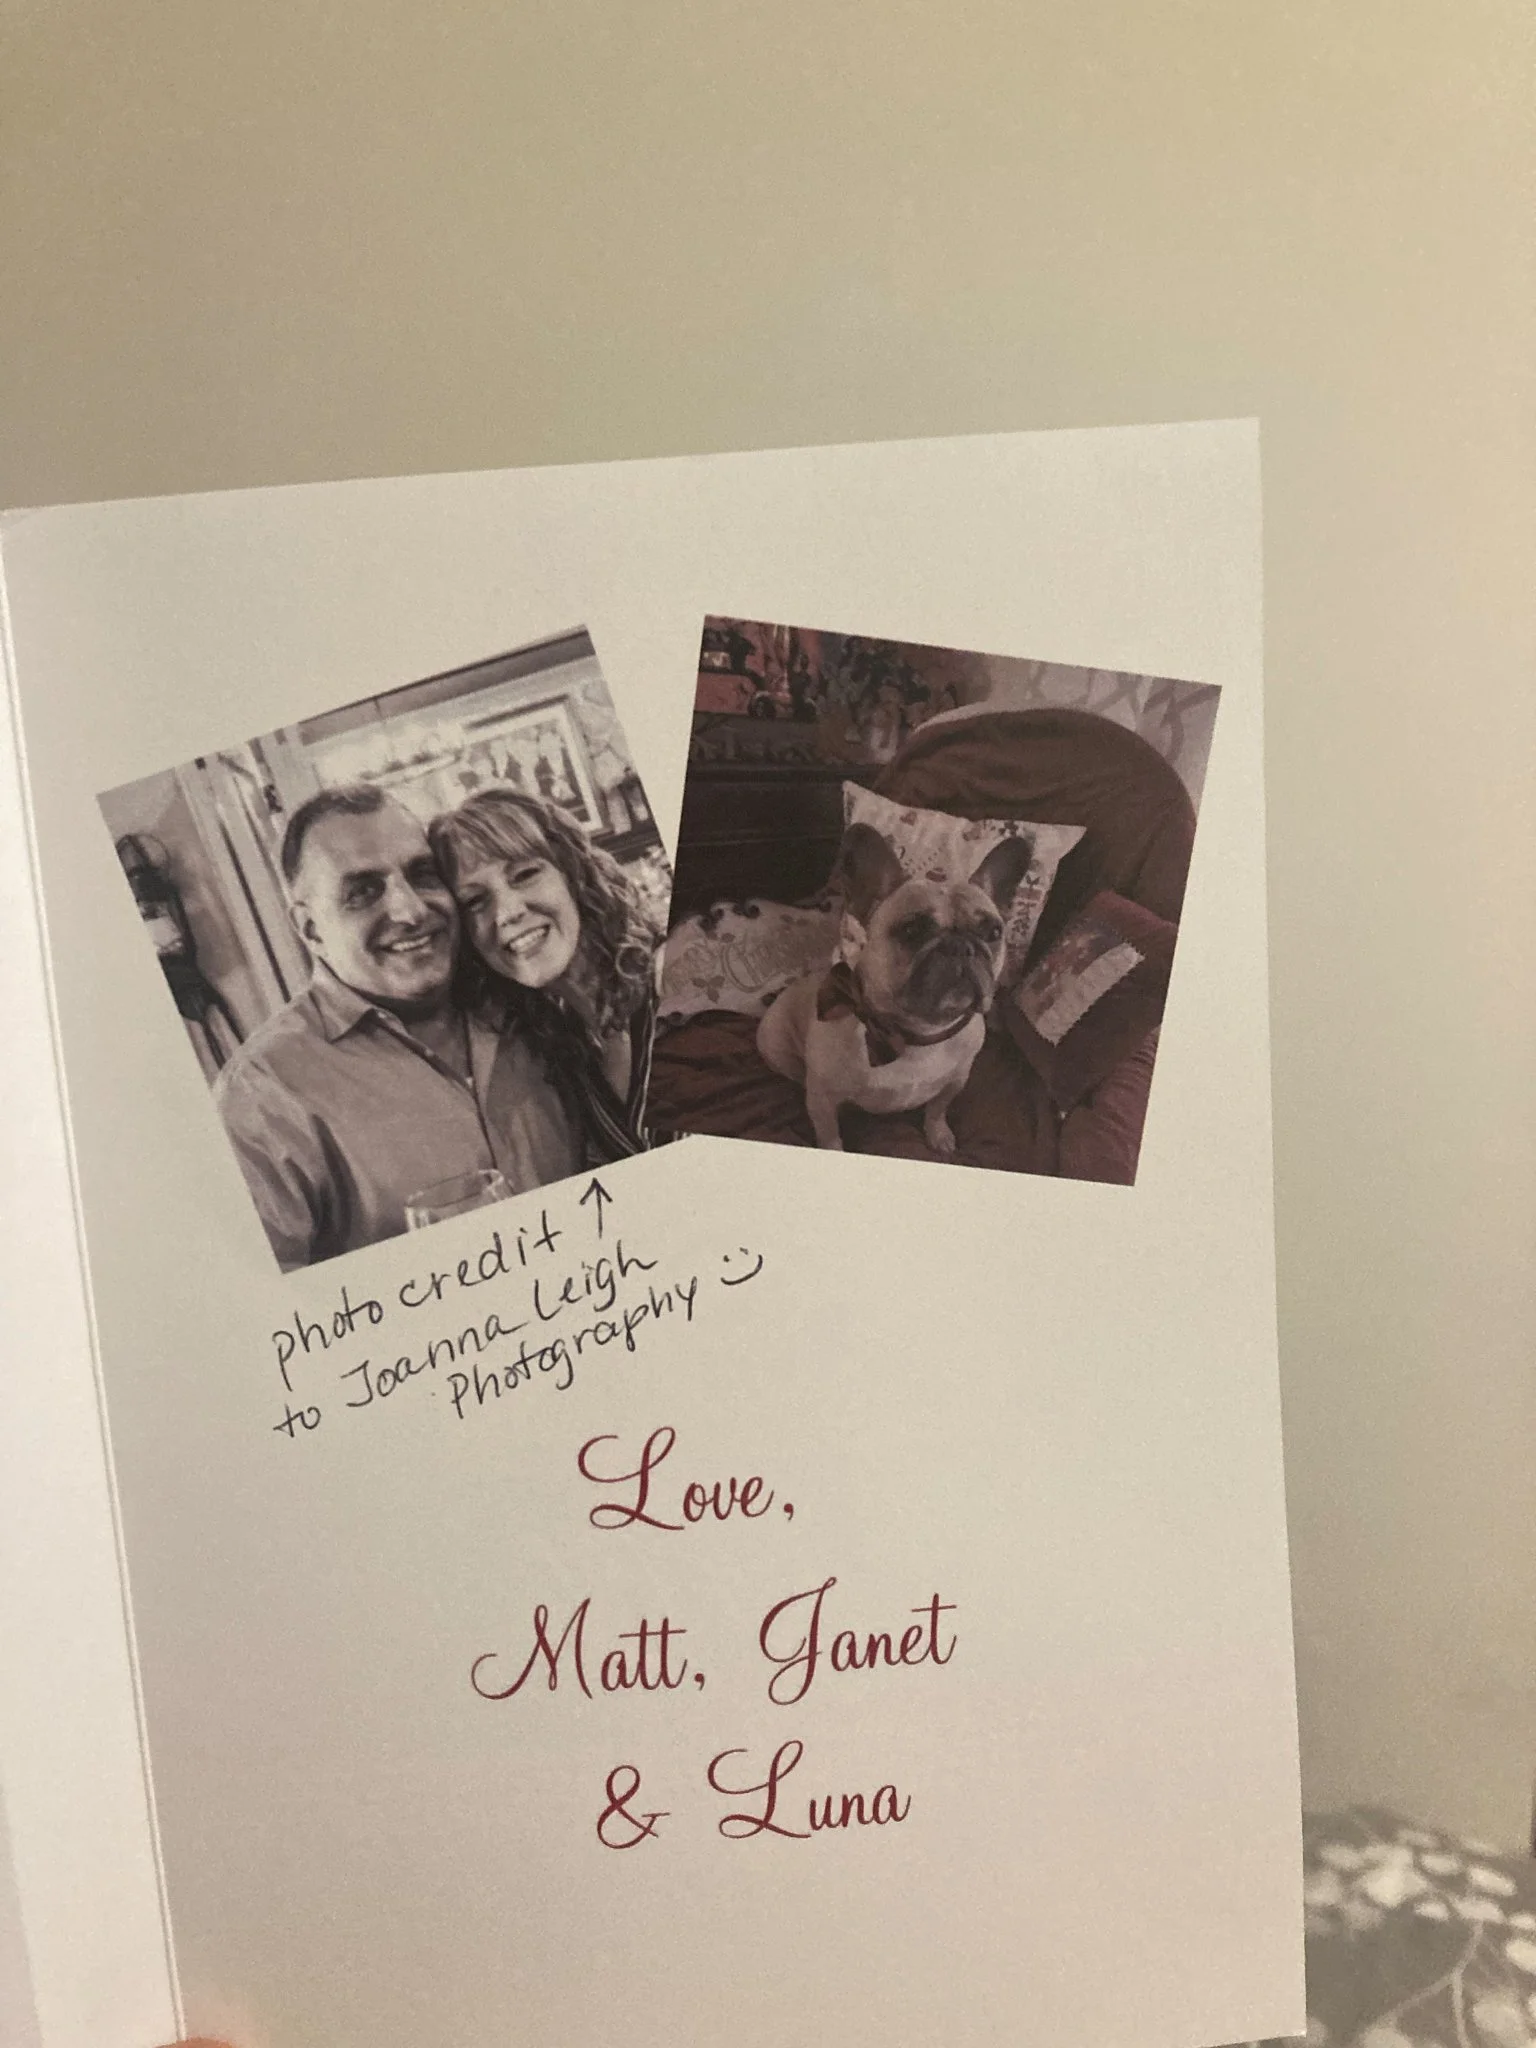 photo credit ↑
to Joanna Leigh
Photography :)
Love,
Matt, Janet
& Luna